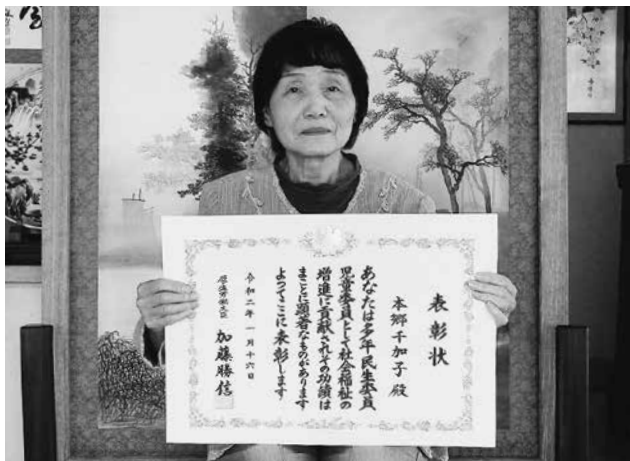 表彰状
本郷千加子 殿
あなたは多年民生委員
児童委員として社会福祉の
増進に貢献されその功績は
まことに顕著なものがあります
よってここに表彰します
令和二年一月十六日
厚生労働大臣 加藤勝信